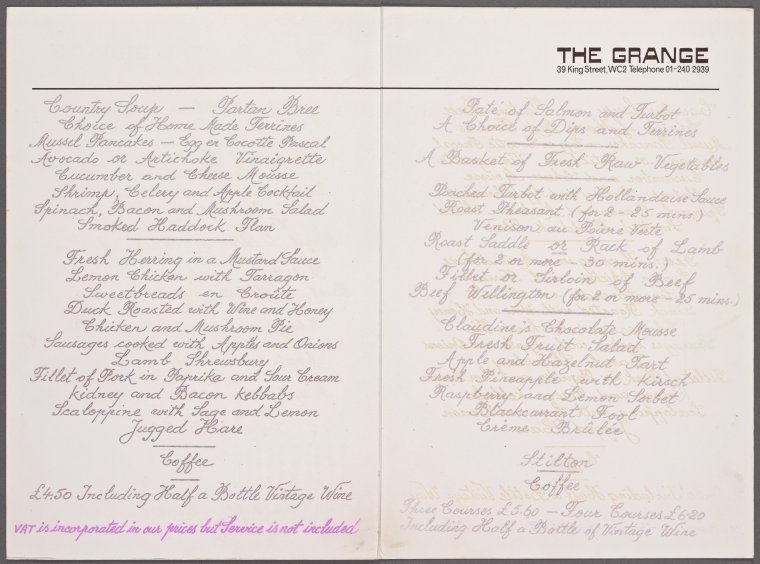 Country Soup — Tartan Bree
Choice of Home Made Terrines
Mussel Pancakes — Egg en Cocotte Pascal
Avocado or Artichoke Vinaigrette
Cucumber and Cheese Mousse
Shrimp, Celery and Apple Cocktail
Spinach, Bacon and Mushroom Salad
Smoked Haddock Flan
Fresh Herring in a Mustard Sauce
Lemon Chicken with Tarragon
Sweetbreads en Croûte
Duck Roasted with Wine and Honey
Chicken and Mushroom Pie
Sausages cooked with Apples and Onions
Lamb Shrewsbury
Fillet of Pork in Paprika and Sour Cream
Kidney and Bacon Kebbabs
Scaloppine with Sage and Lemon
Jugged Hare
Coffee
£4.50 Including Half a Bottle Vintage Wine
VAT is incorporated in our prices but Service is not included
THE GRANGE
39 King Street, WC2 Telephone 01-240 2939
Paté of Salmon and Turbot
A Choice of Dips and Terrines
A Basket of Fresh Raw Vegetables
Poached Turbot with Hollandaise Sauce
Roast Pheasant (for 2 - 25 mins.)
Venison au Poivre Verte
Roast Saddle or Rack of Lamb
(for 2 or more - 30 mins.)
Fillet or Sirloin of Beef
Beef Wellington (for 2 or more - 25 mins.)
Claudine's Chocolate Mousse
Fresh Fruit Salad
Apple and Hazelnut Tart
Fresh Pineapple with Kirsch
Raspberry and Lemon Sorbet
Blackcurrant Fool
Crème Brûlée
Stilton
Coffee
Three Courses £5.60 — Four Courses £6.20
Including Half a Bottle of Vintage Wine